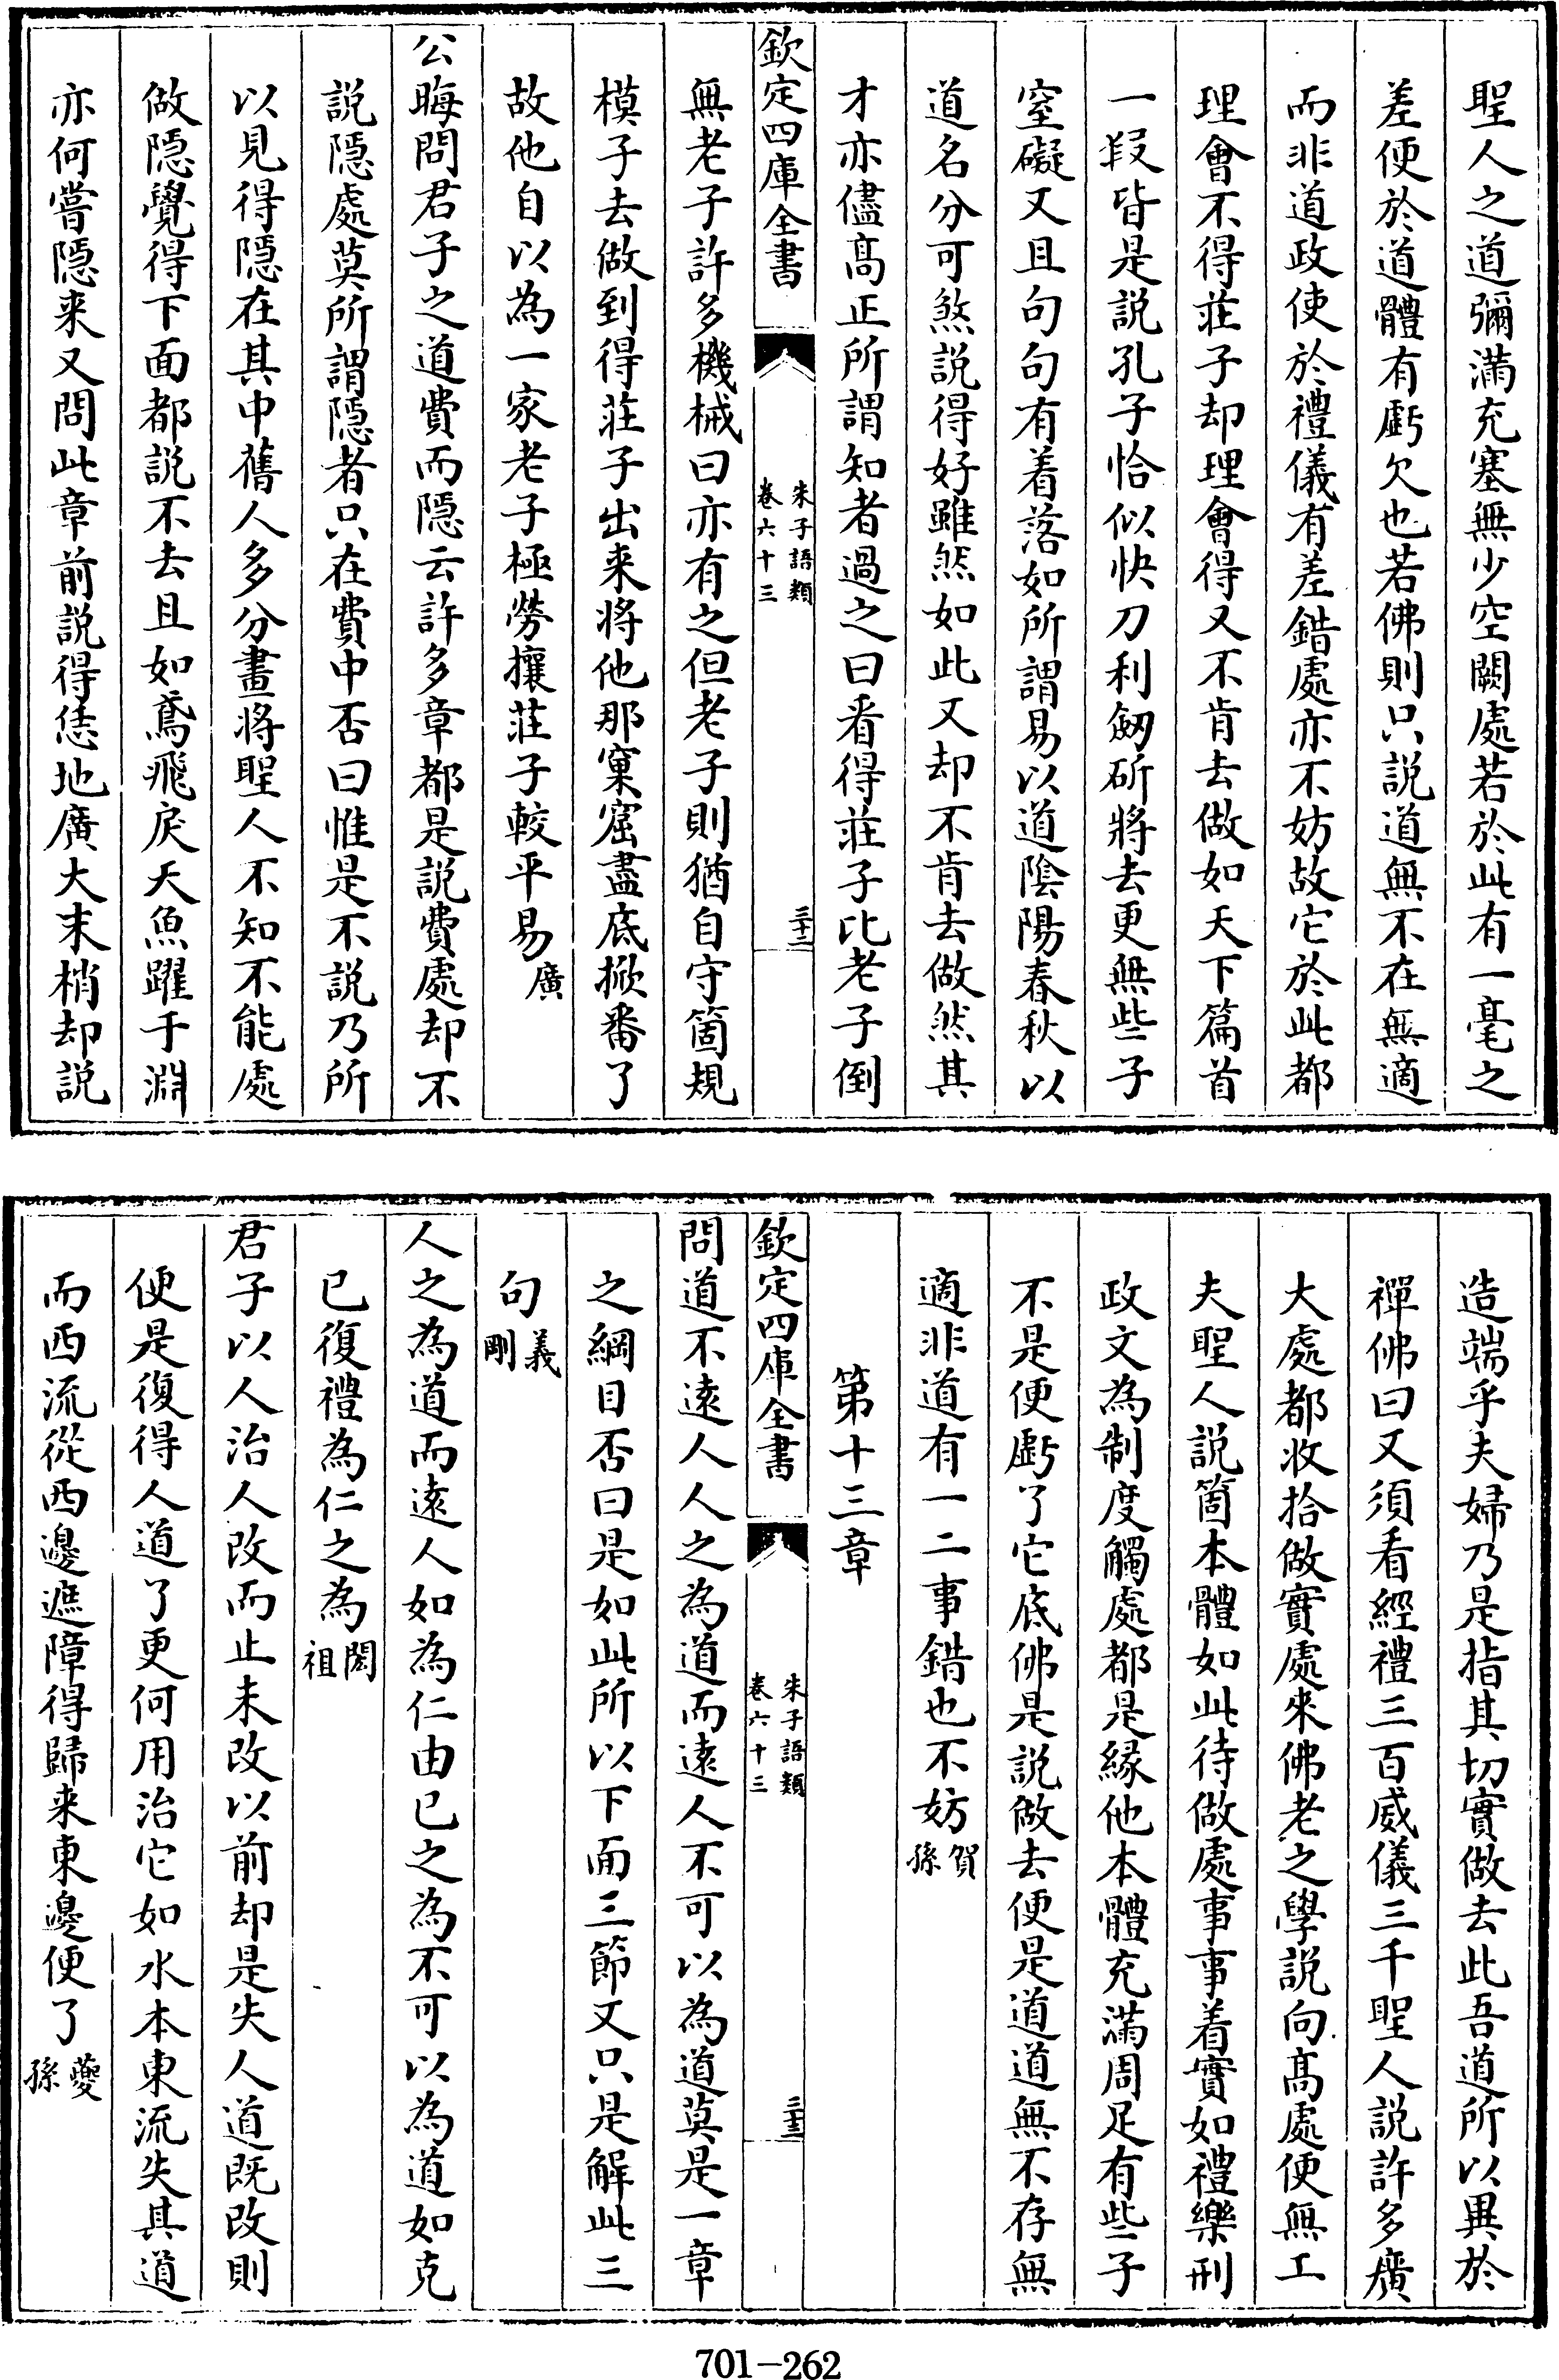 聖人之道彌滿充塞無少空闕處若於此有一毫之
差便於道體有虧欠也若佛則只說道無不在無適
而非道政使於禮儀有差錯處亦不妨故它於此都
理會不得莊子却理會得又不肯去做如天下篇首
一叚皆是說孔子恰似快刀利劒斫將去更無些子
窒礙又且句句有着落如所謂易以道陰陽春秋以
道名分可煞說得好雖然如此又却不肯去做然其
才亦儘髙正所謂知者過之曰看得莊子比老子倒
欽定四庫全書
朱子語類
卷六十三
三十二
無老子許多機械曰亦有之但老子則猶自守箇規
模子去做到得莊子出来將他那窠窟盡底掀番了
故他自以為一家老子極勞攘莊子較平易廣
公晦問君子之道費而隱云許多章都是說費處却不
説隱處莫所謂隱者只在費中否曰惟是不説乃所
以見得隱在其中舊人多分畫將聖人不知不能處
做隱覺得下面都說不去且如鳶飛戾天魚躍于淵
亦何嘗隱来又問此章前説得恁地廣大末梢却説
造端乎夫婦乃是指其切實做去此吾道所以異於
禪佛曰又須看經禮三百威儀三千聖人說許多廣
大處都收拾做實處來佛老之學説向髙處便無工
夫聖人說箇本體如此待做處事事着實如禮樂刑
政文為制度觸處都是緣他本體充滿周足有些子
不是便虧了它底佛是説做去便是道道無不存無
適非道有一二事錯也不妨賀孫
第十三章
欽定四庫全書
朱子語類
卷六十三
三十三
問道不逺人人之為道而逺人不可以為道莫是一章
之綱目否曰是如此所以下面三節又只是解此三
句義剛
人之為道而逺人如為仁由已之為不可以為道如克
已復禮為仁之為閎祖
君子以人治人改而止未改以前却是失人道既改則
便是復得人道了更何用治它如水本東流失其道
而西流從西邊遮障得歸来東邊便了夔孫
701-262